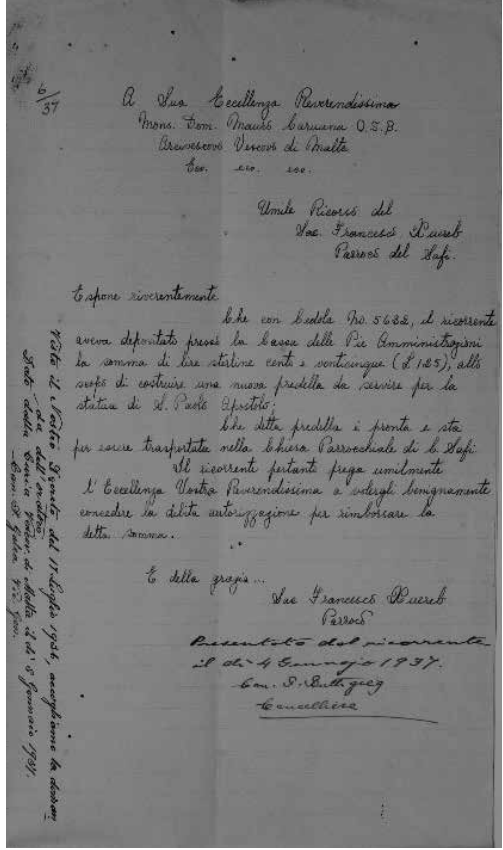 6/37
A Sua Eccellenza Reverendissima
Mons. Dom. Mauro Caruana O.S.B.
Arcivescovo Vescovo di Malta
Ecc. ecc. ecc.
Umile Ricorso del
Sac. Francesco Xuereb
Parroco del Safi.
Espone riverentemente
Che con Cedola No. 5622, il ricorrente
aveva depositato presso la Cassa delle Pie Amministrazioni
la somma di lire sterline cento e venticinque (£125), allo
scopo di costruire una nuova predella da servire per la
statua di S. Paolo Apostolo;
Che detta predella è pronta e sta
per essere trasportata nella Chiesa Parrocchiale di C. Safi
Il ricorrente pertanto prega umilmente
l'Eccellenza Vostra Reverendissima a volergli benignamente
concedere la debita autorizzazione per rimborsare la
detta somma.
E della grazia...
Sac Francesco Xuereb
Parroco
Presentato dal ricorrente
il dì 4 Gennajo 1937.
Can. Buttigieg
Cancelliere
Visto il Nostro Decreto del 17 Luglio 1936, accogliamo la doman
da dell'oratore.
Dato dalla Curia Vescov. di Malta il dì 5 Gennaio 1937.
Can. Galea Vic Gen.